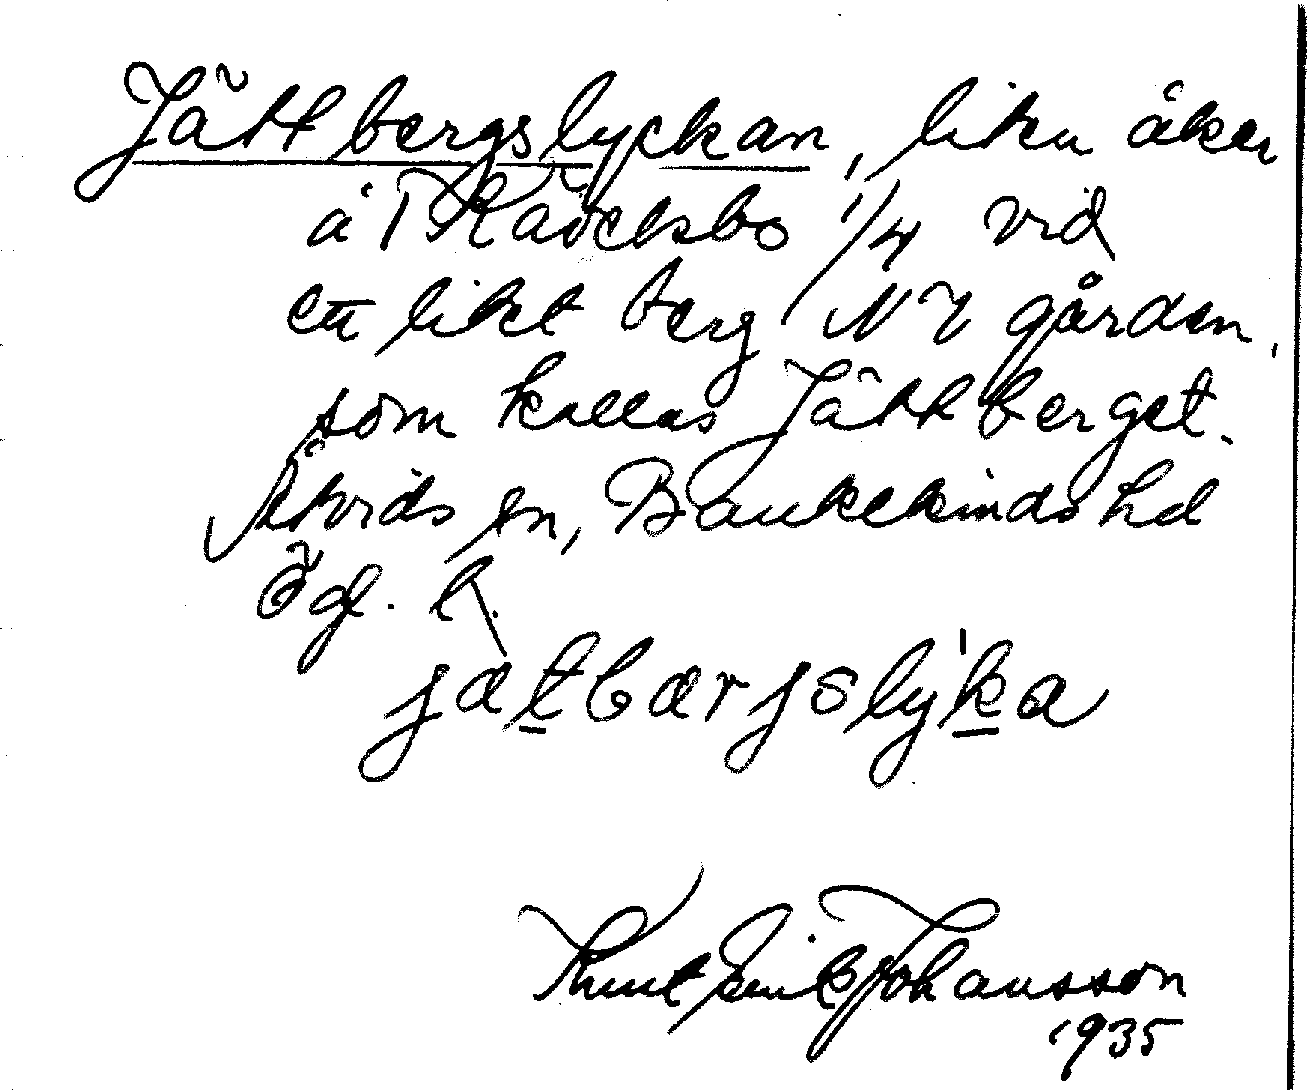 Jättbergslyckan, liten åker
å Rävelsbo 1/4 vid
ett litet berg NV gården,
som kallas Jättberget.
Åtvids sn, Bankekinds hd
Ögl. l.
jætbærjslyka
Knut Erik Johansson
1935